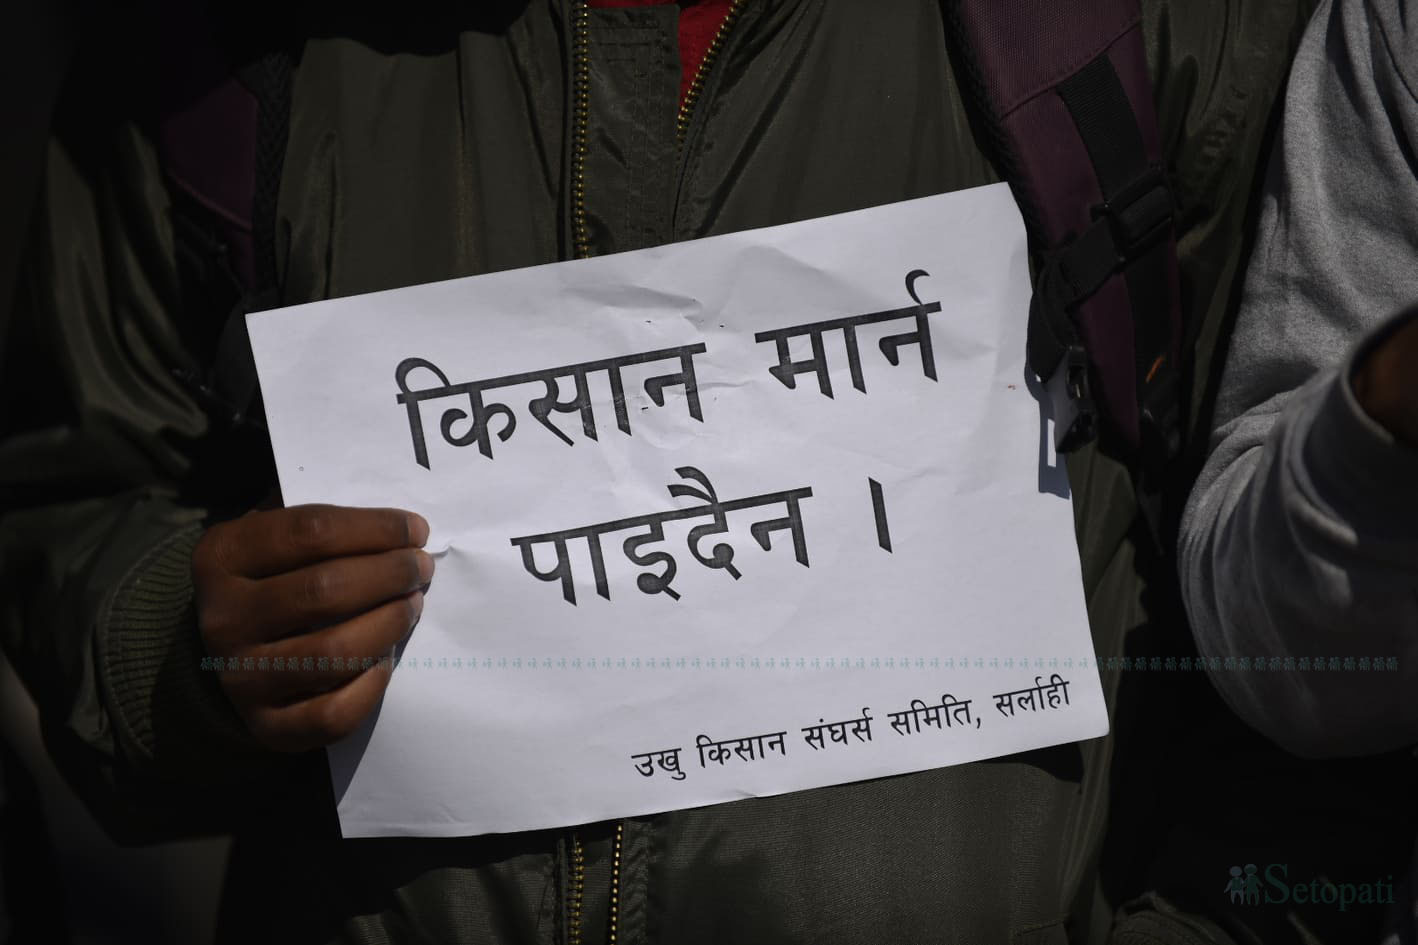 किसान मार्न
पाइदैन ।
उखु किसान संघर्स समिति, सर्लाही
Setopati